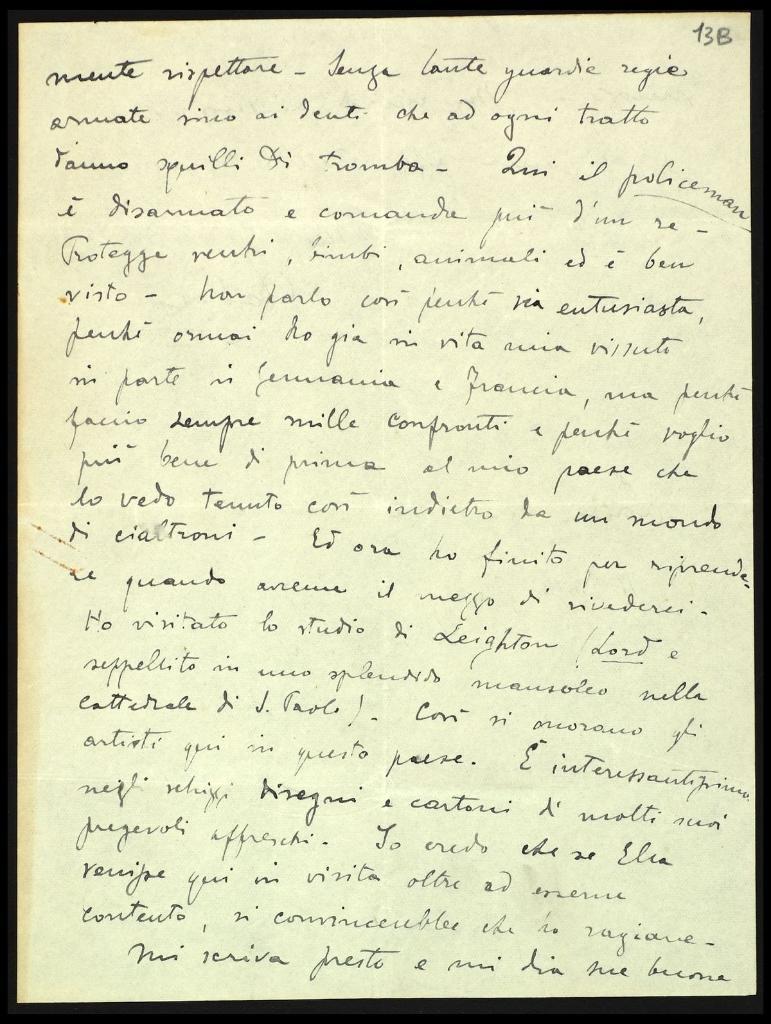 13B
mente rispettare - Senza tante guardie regie
armate sino ai denti che ad ogni tratto
danno squilli di tromba - Qui il policeman
è disarmato e comanda più d'un re -
Protegge vecchi, bimbi, animali ed è ben
visto - Non parlo così perchè sia entusiasta,
perchè ormai ho già in vita mia vissuto
in parte in Germania e Francia, ma perchè
faccio sempre mille confronti e perchè voglio
più bene di prima al mio paese che
lo vedo tenuto così indietro da un mondo
di cialtroni - Ed ora ho finito per riprende-
re quando avremo il mezzo di rivederci -
Ho visitato lo studio di Leighton (Lord e
seppellito in uno splendido mausoleo nella
cattedrale di S. Paolo) - Così si onorano gli
artisti qui in questo paese. È interessantissimo
negli schizzi disegni e cartoni di molti suoi
pregevoli affreschi - Io credo che se
venisse qui in visita oltre ad esserne
contento, si convincerebbe che ho ragione -
Mi scriva presto e mi dia sue buone